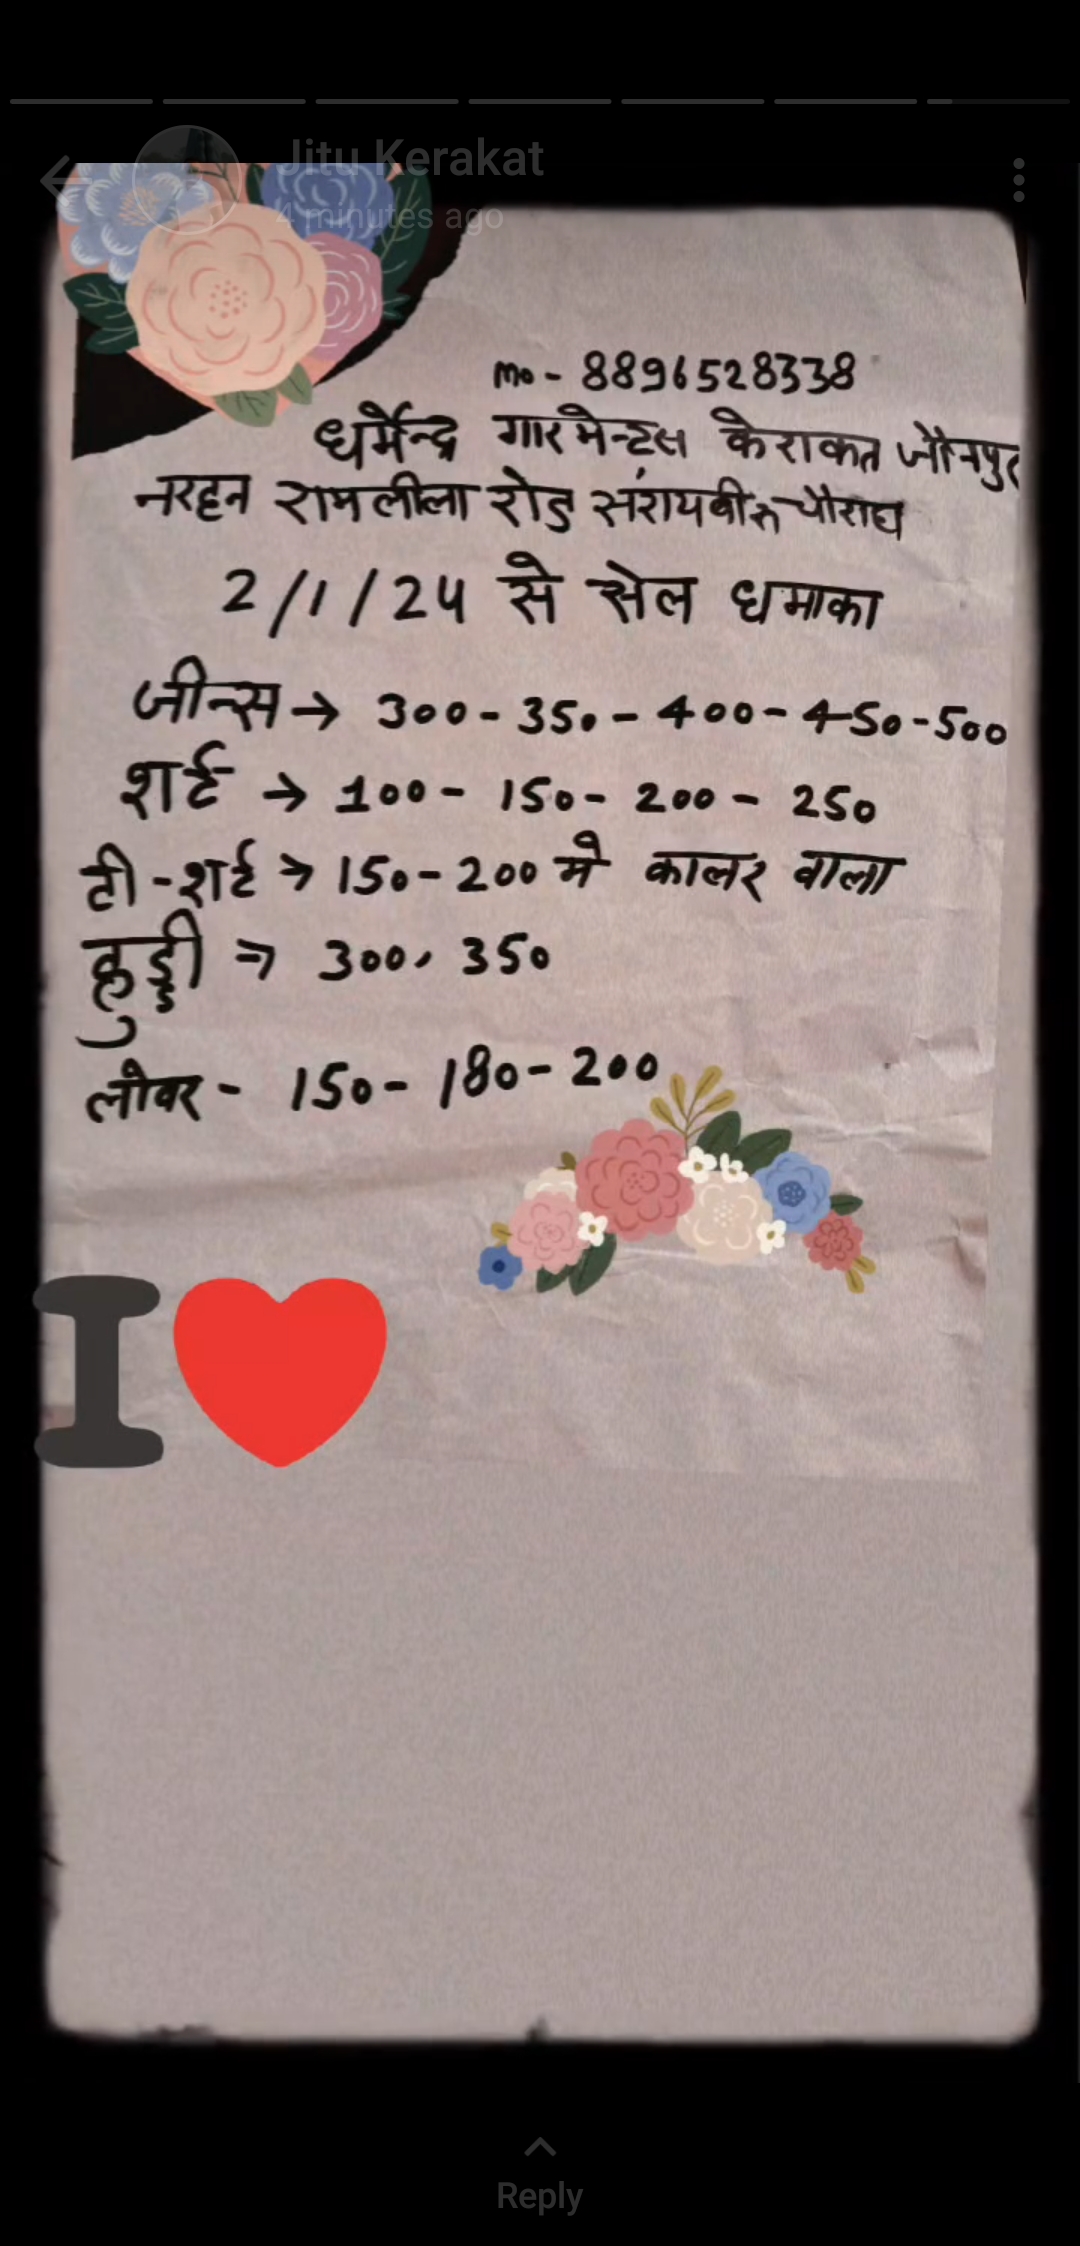 Jitu Kerakat
4 minutes ago
mo - 8896528338
धर्मेन्द्र गारमेन्ट्स केराकत जौनपुर
नरहन रामलीला रोड सरायबीरु चौराहा
2/1/24 से सेल धमाका
जीन्स → 300 - 350 - 400 - 450 - 500
शर्ट → 100 - 150 - 200 - 250
टी - शर्ट → 150 - 200 मे कालर वाला
हुड्डी ⇒ 300, 350
लोवर - 150 - 180 - 200
I
Reply